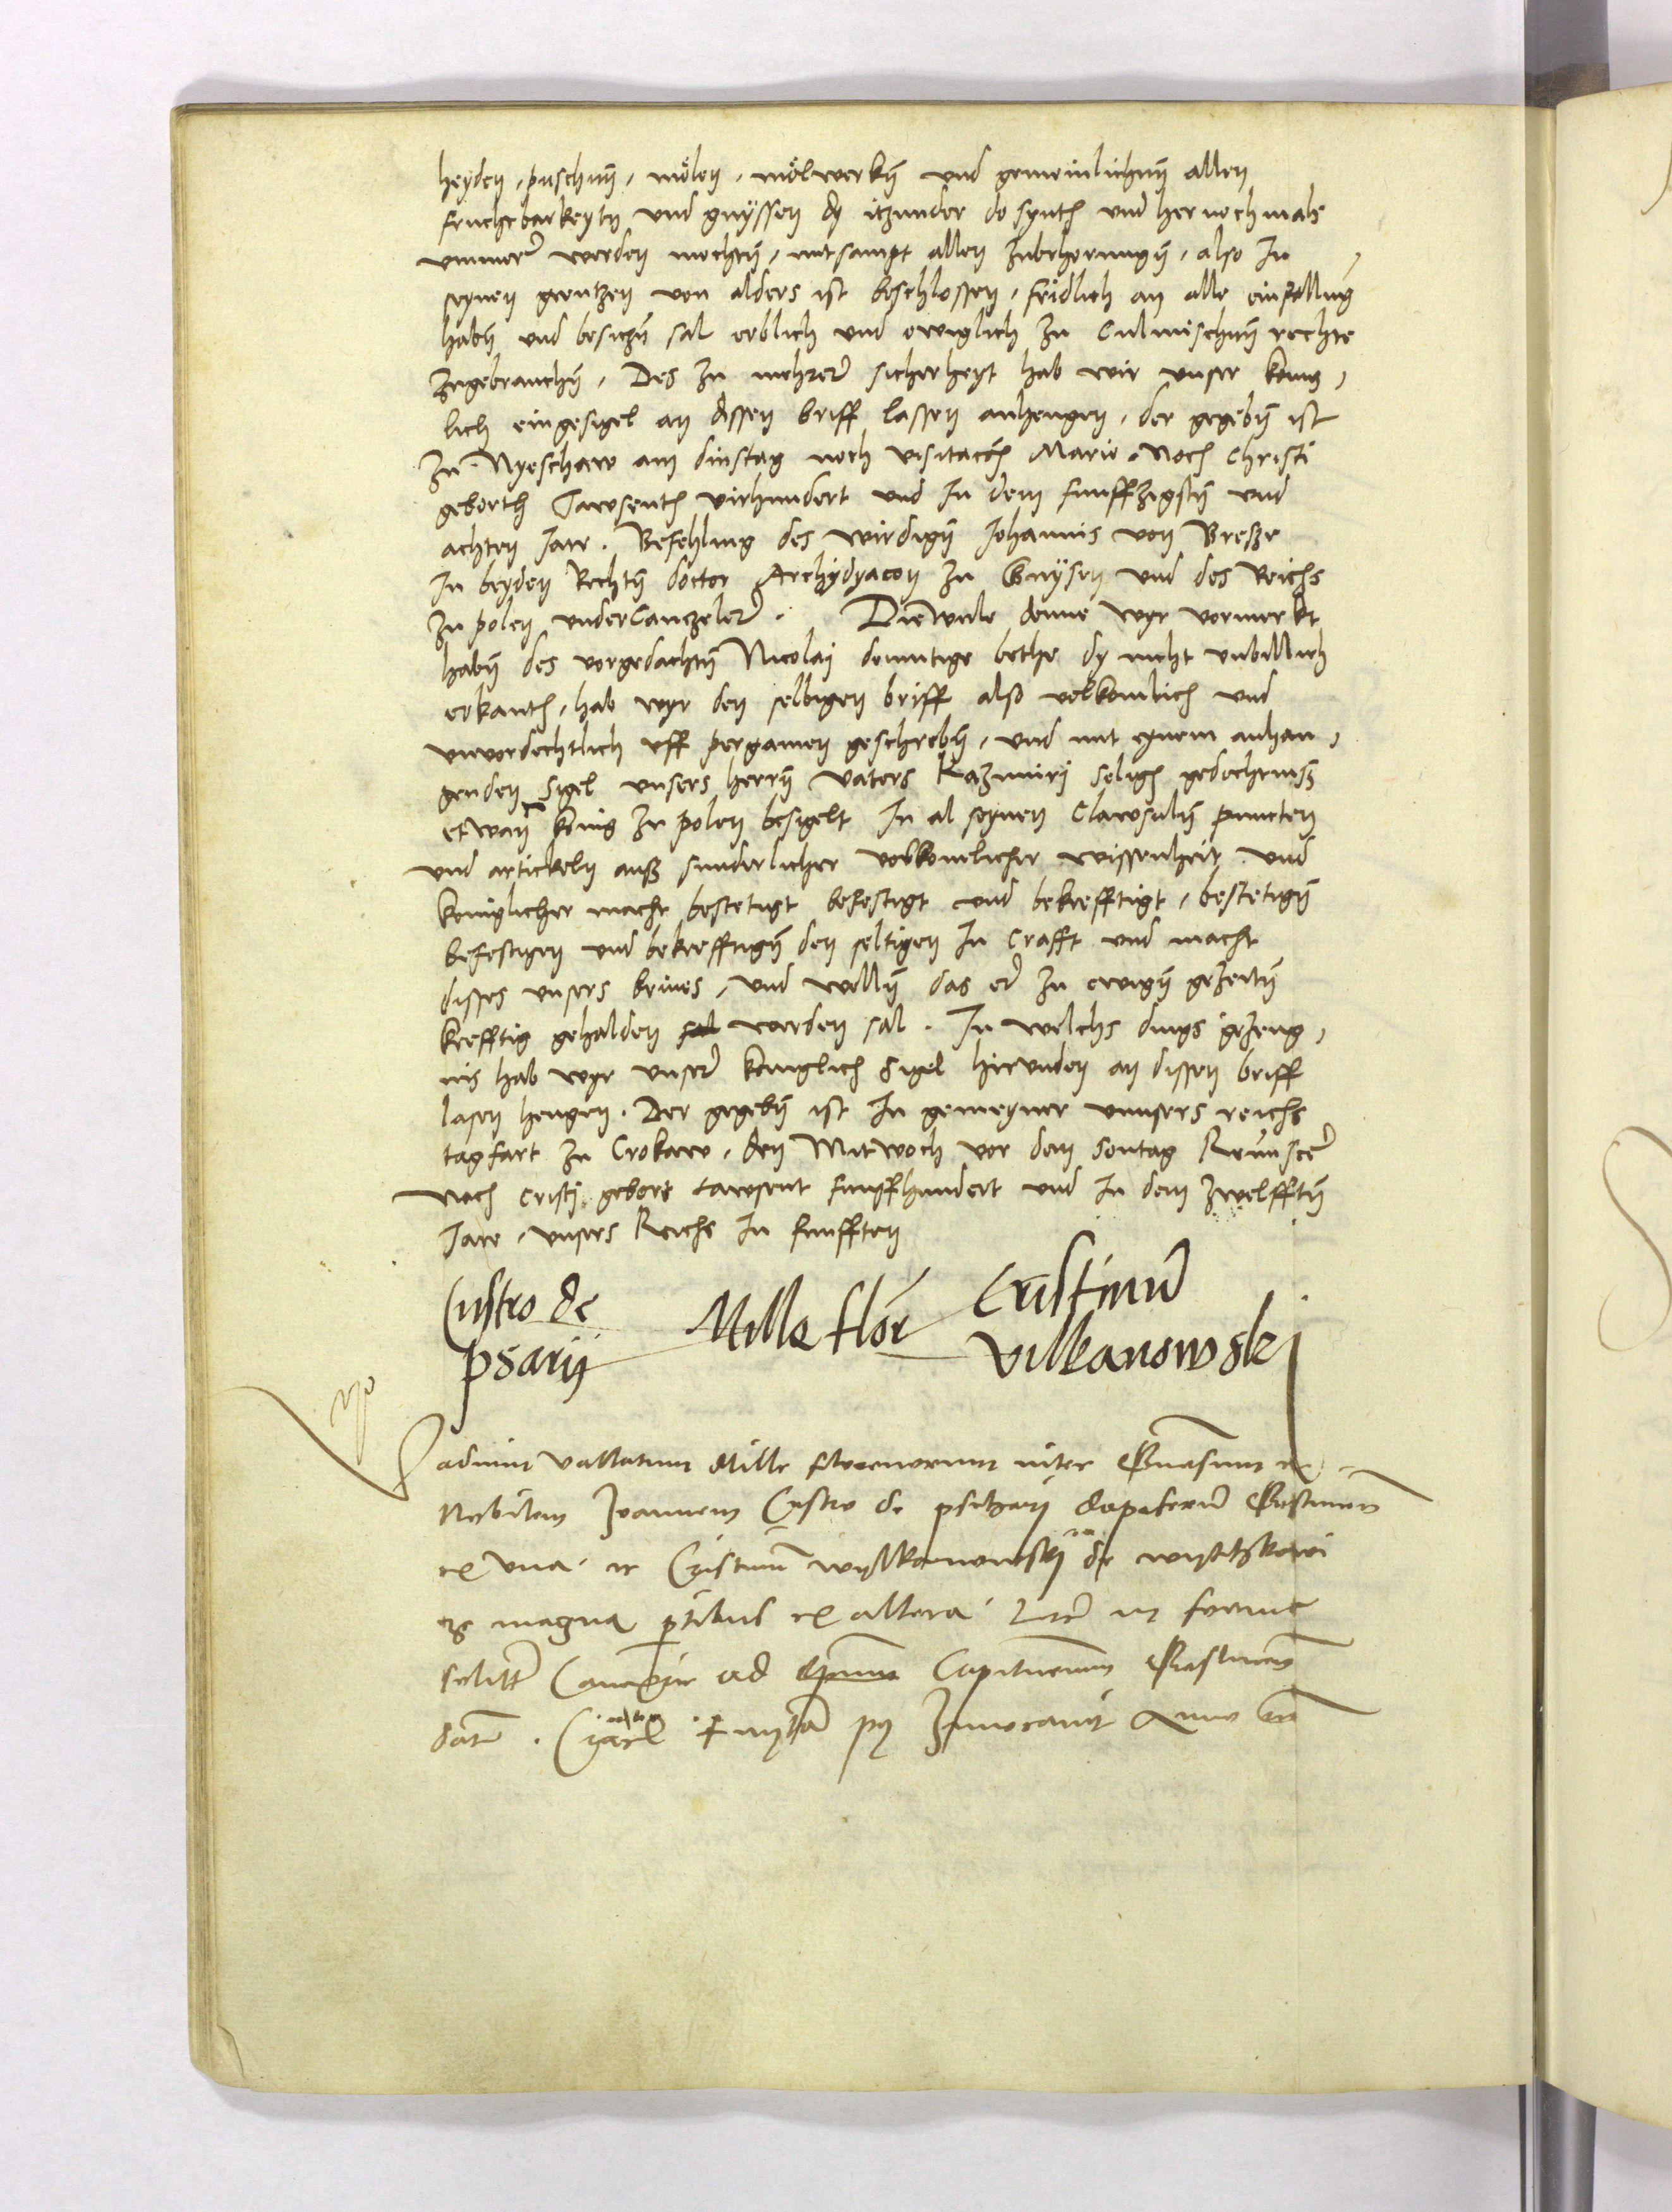 heyden, puschenn, mölen, mölwerkenn und gemeinlichenn allen
fruchtbarkeyten und gnyssen dy itzunder do synth und her nochmals
ummer werden mochten, mitsampt allen zubehorungen, also in
seynen grentzen von alders ist beschlossen, fridlich an alle einfellung
haben und besiczen sal erblich und ewiglich zu Culmischenn rechte
zugebrauchen, Des zu mehrer sicherheyt hab wir unser konig,
lich eingesigel an dissen briff lassen anhengen, der gegeben ist
zu Nyeschaw am dinstag noch visitacoch Marie. Noch Christi
geborth Tawsenth virhundert und in dem funffzigsten und
achten Jare. Befehlung des wirdigen Johannis von Bresze
in beyden Rechten doctor Archydyacon zu Gnysen und des Reichs
zu polen underCanczeler. Diewile denne wyr vormerkt
haben des vorgedachten Nicolai demutige bethe dy nicht unbillich
erkanth, hab wyr den selbigen briff also volkomlich und
unvordechtlich uff pergamen geschreben, und mit eynem anhan,
genden sigel unsers herren vaters Kazimiri seligh gedechtnisz
etwan konig zu polen besigelt In al seynen Clawsulen puncten
und artickeln ausz sunderlicher volkomelicher wissenheit und
koniglicher macht bestetigt befestigt und bekrefftigt, bestetigen
befestigen und bekrefftigen den selbigen in Crafft und macht
disses unsers brives, und wellen das er zu ewigen gezeiten
krefftig gehalden sal werden sal. In welchs dings gezeug,
nis hab wyr unser koniglich Sigel hirunden an dissen briff
lasen hengen. Der gegeben ist In gemeyner unnsers reichs
tagfart zu Crokaw, den Mitwoch vor dem sontag Reminiscer
Noch Cristi gebort tawsent funffhundert und in dem zwelfften
Jare, unsers Reichs im funfften
Custro de Mille flor Cristinum
psarij Vilkanowski
Vadium vallatum Mille florenorum inter
Nobilem Joannem Custro de
ex una et Cristinum wylkanowsky de
magna ptibus ex altera
ad Capitaneum
datum